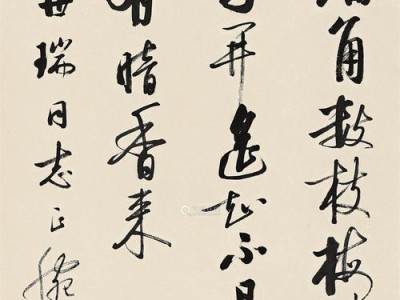 角数枝梅
开遥知不
有暗香来
瑞同志正